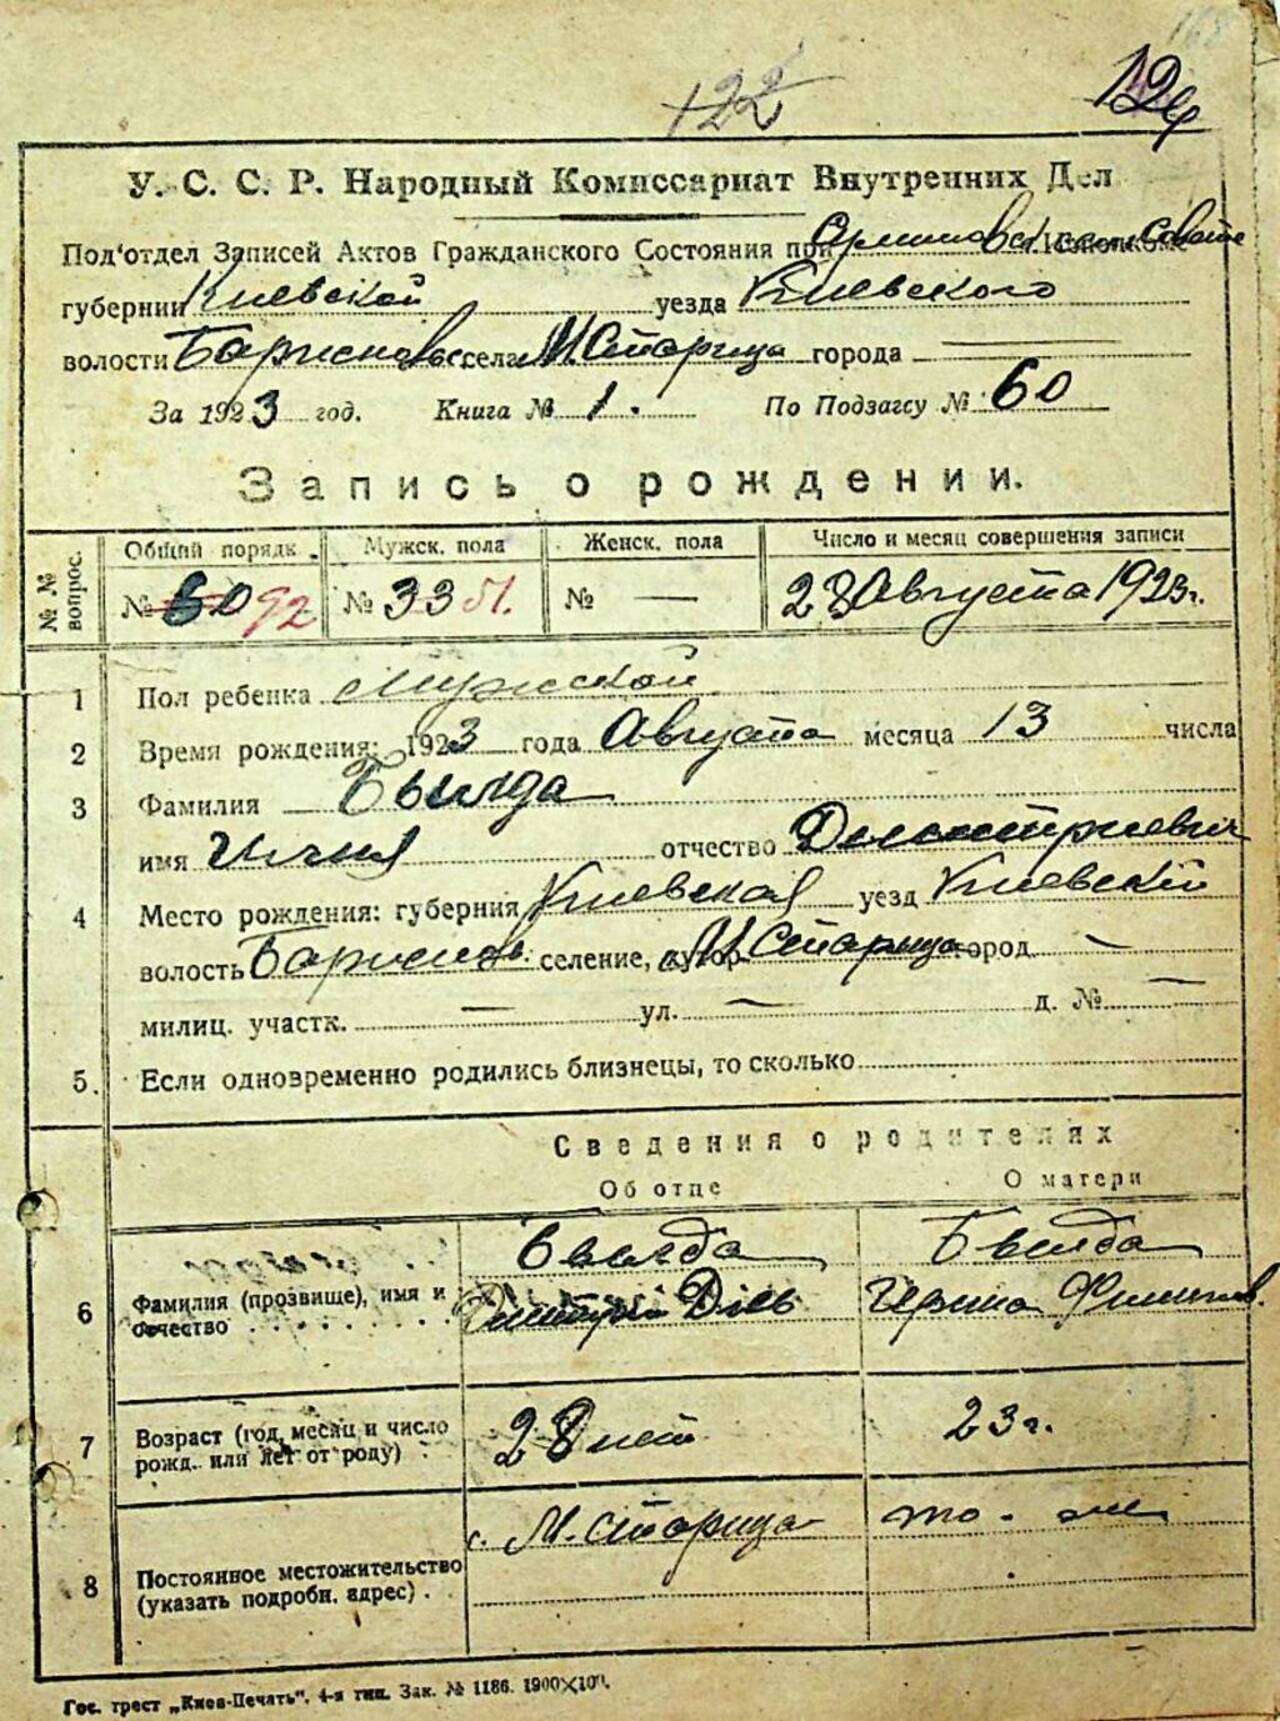 122
У. С. С. Р. Народный Комиссариат Внутренних Дел
Под'отдел Записей Актов Гражданского Состояния при
губернии Киевской уезда Киевского
волости села М. Старица города —
За 1923 год. Книга № 1. По Подзагсу № 60
Запись о рождении.
№ № вопрос. Общий порядк. Мужск. пола Женск. пола Число и месяц совершения записи
№ 60 92 № 33 51. № — 28 Августа 1923 г.
1 Пол ребенка Мужской
2 Время рождения: 1923 года Августа месяца 13 числа
3 Фамилия Былда
имя Илия отчество Дмитриевич
4 Место рождения: губерния Киевская уезд Киевский
волость селение, хутор М Старица город —
милиц. участк. — ул. — д. № —
5. Если одновременно родились близнецы, то сколько
Сведения о родителях
Об отце О матери
Былда Былда
6 Фамилия (прозвище), имя и Дмитрий
отчество
7 Возраст (год, месяц и число 28 лет 23 г.
рожд. или лет от роду)
с. М. Старица то-же
8 Постоянное местожительство
(указать подробн. адрес)
Гос. трест „Киев-Печать", 4-я тип. Зак. № 1186. 1900×100.